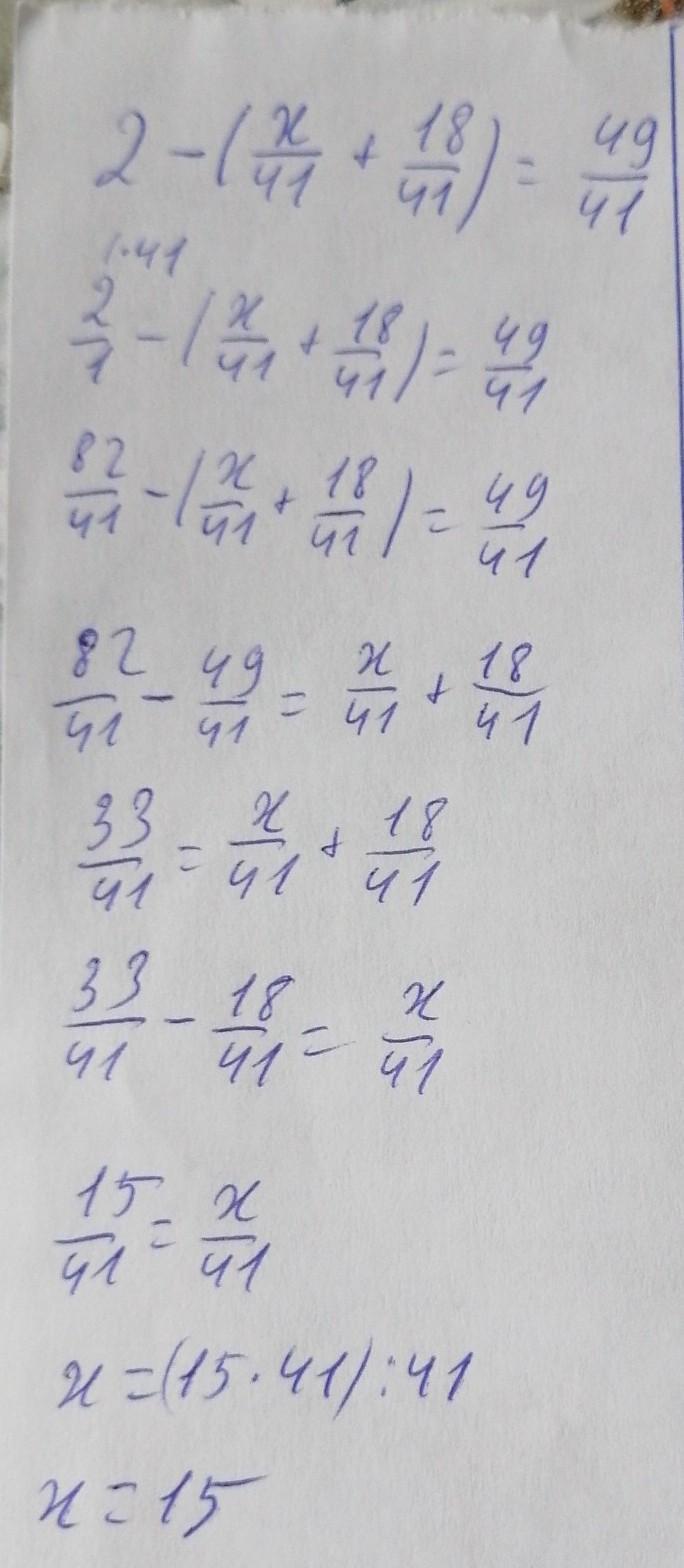 2 - (x/41 + 18/41) = 49/41
2/1 |·41 - (x/41 + 18/41) = 49/41
82/41 - (x/41 + 18/41) = 49/41
82/41 - 49/41 = x/41 + 18/41
33/41 = x/41 + 18/41
33/41 - 18/41 = x/41
15/41 = x/41
x = (15 · 41) : 41
x = 15